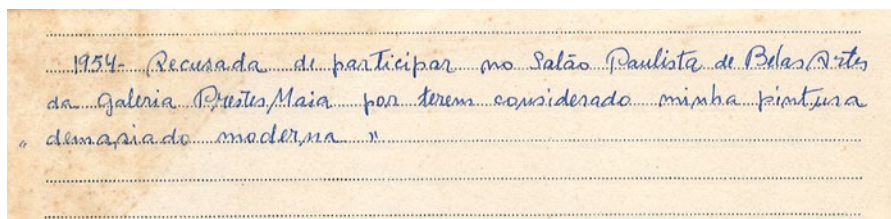 1954- Recusada de participar no Salão Paulista de Belas Artes
da Galeria Prestes Maia por terem considerado minha pintura
"demasiado moderna"